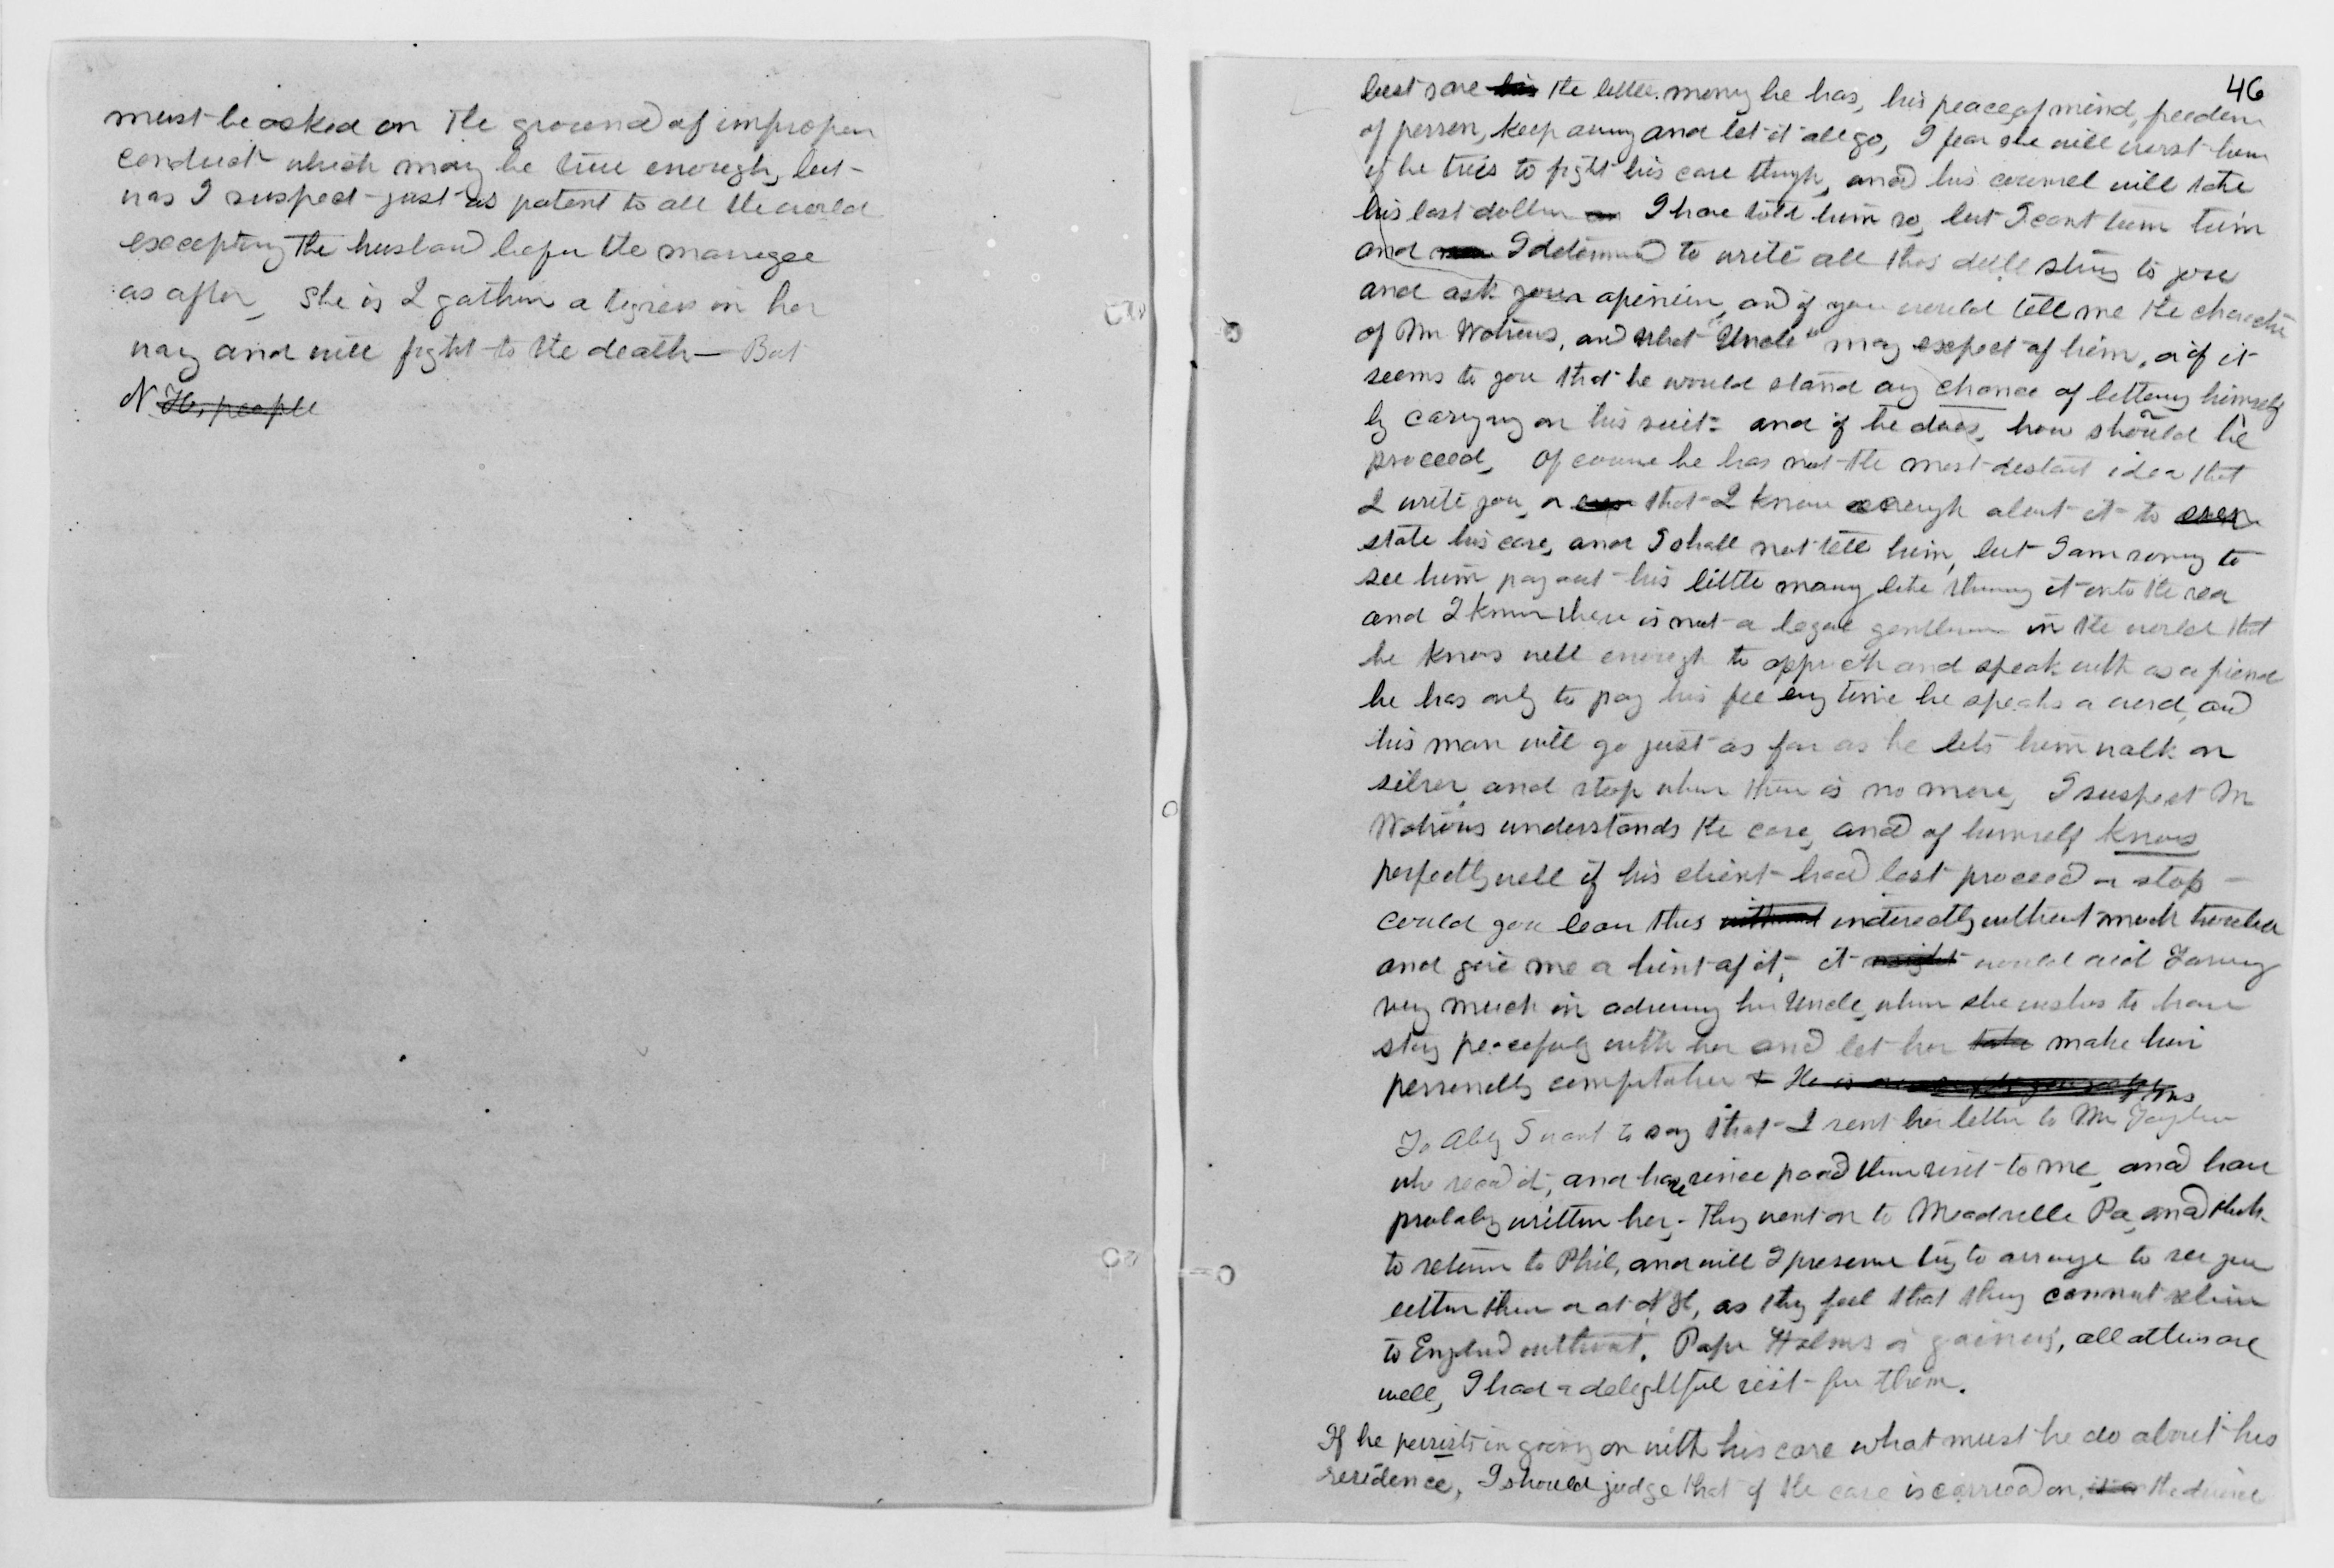 must be asked on the ground of improper
conduct which may be true enough, but
was I suspect just as patent to all the world
excepting the husband before the marriage
as after, She is I gather a tigress in her
way and will fight to the death — But
N H, people
46
best save his the little money he has, his peace of mind, freedom
of person, keep away and let it all go, I fear she will worst him
if he tries to fight his case though, and his counsel will take
his last dollar I have told him so, but I cant turn him
and I determined to write all this dull story to you
and ask your opinion, and if you would tell me the character
of Mr Watrous, and what "Uncle" may expect of him, or if it
seems to you that he would stand any chance of bettering himself
by carrying on his suit - and if he does, how should he
proceed, Of course he has not the most distant idea that
I write you, or even that I know enough about it to even
state his case, and I shall not tell him, but I am sorry to
see him pay out his little money like throwing it into the sea
and I know there is not a legal gentleman in the world that
he knows well enough to approach and speak with as a friend
he has only to pay his fee every time he speaks a word, and
his man will go just as far as he lets him walk on
silver, and stop when there is no more, I suspect Mr
Watrous understands the case, and of himself knows
perfectly well if his client had best proceed or stop —
could you learn this without indirectly without much trouble
and give me a hint of it, it might would aid Fanny
very much in advising her Uncle, whom she wishes to have
stay peacefully with her and let her take make him
personally comfortable + He is
To Abby I want to say that I sent her letter to Mr Taylor
who read it, and have since paid their visit to me, and have
probably written her, They went on to Meadville Pa, and
to return to Phil, and will I presume try to arrange to see you
either there or at N H, as they feel that they cannot return
to England without. Papa Holmes is gaining, all others are
well, I had a delightful visit from them.
If he persists in going on with his case what must he do about his
residence, I should judge that if the case is carried on, it is the divorce